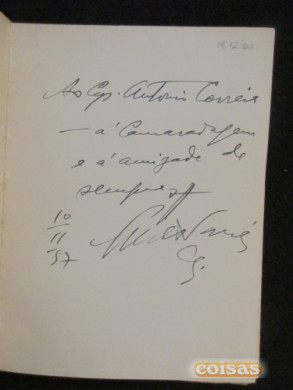 Ao Cap. Antonio Correia
— á Camaradagem
e á amizade de
sempre
10
11
57
coisas